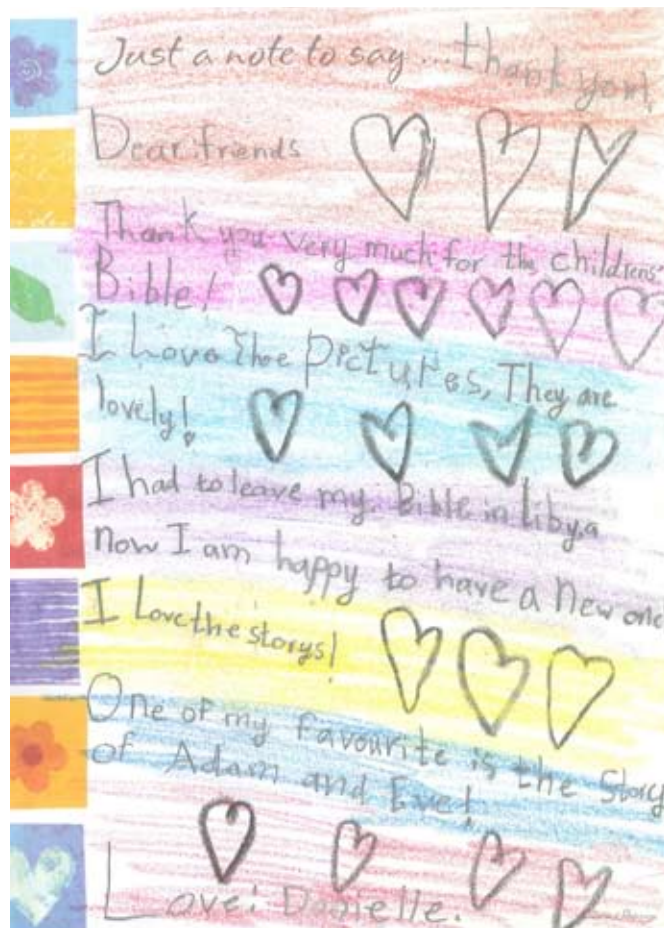 Just a note to say... thank you!
Dear friends
Thank you very much for the childrens
Bible!
I Love The pictures, They are
lovely!
I had to leave my Bible in Libya
now I am happy to have a New one
I Love the storys!
One of my favourite is the Story
of Adam and Eve!
Love: Danielle.